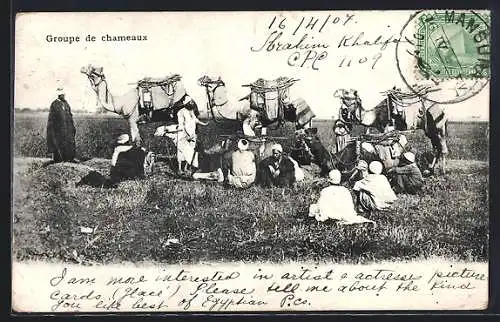 Groupe de chameaux
16/4/07
Ibrahim Khalifa
CPC 1109
MANSURA
I am more interested in artist & actress picture
cards (Glacé) Please tell me about the kind
you like best of Egyptian P.cs.